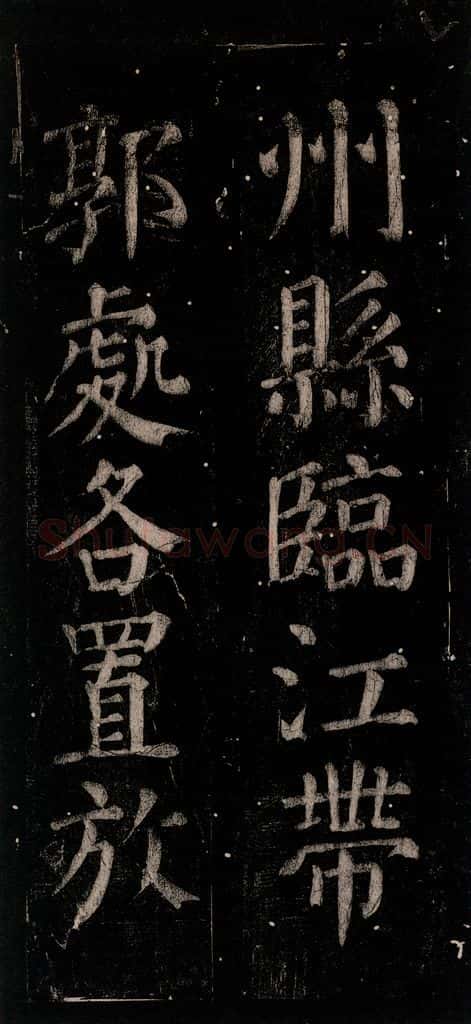 州縣臨江帶
郭處各置放
Shufawang.CN